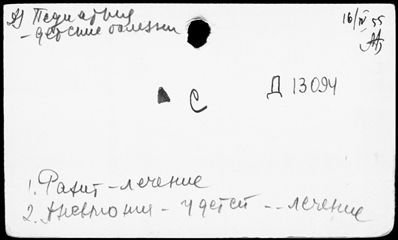 Педиатрия
– детские болезни
16/IV 55
С
Д 13094
1. Рахит – лечение
2. Пневмония – у детей -- лечение